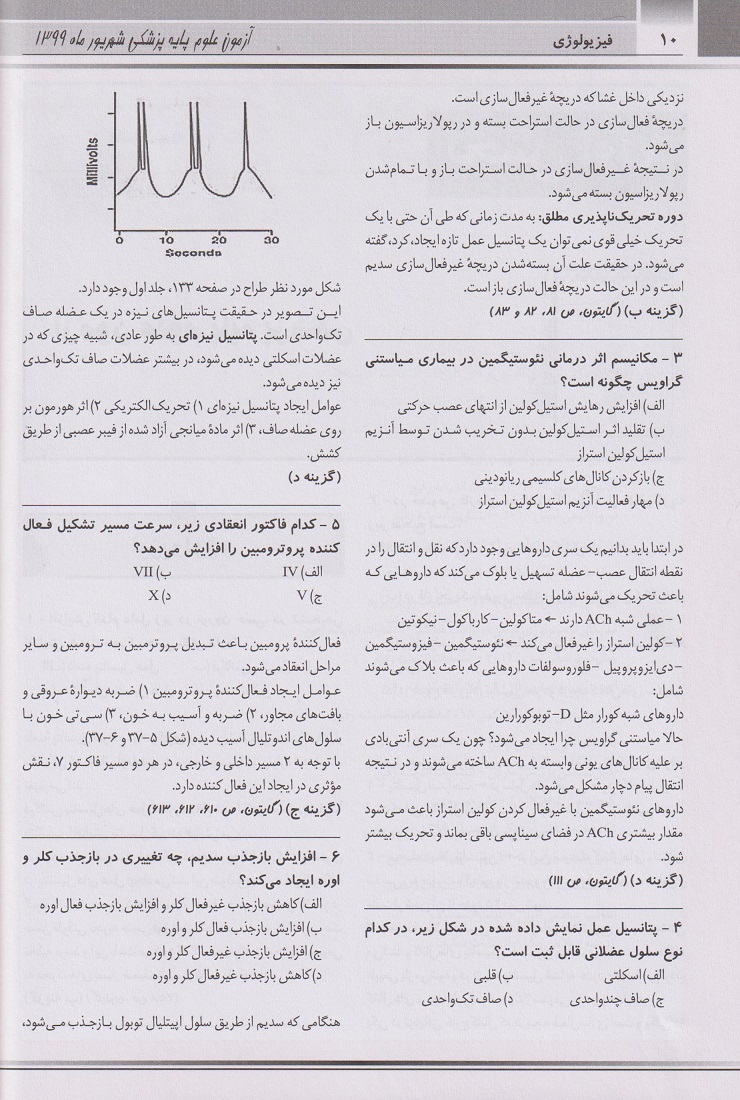 ۱۰
فیزیولوژی
آزمون علوم پایه پزشکی شهریور ماه ۱۳۹۹
نزدیکی داخل غشا که دریچهٔ غیرفعال‌سازی است.
دریچهٔ فعال‌سازی در حالت استراحت بسته و در رپولاریزاسیون باز
می‌شود.
در نتیجهٔ غیرفعال‌سازی در حالت استراحت باز و با تمام‌شدن
رپولاریزاسیون بسته می‌شود.
دوره تحریک‌ناپذیری مطلق: به مدت زمانی که طی آن حتی با یک
تحریک خیلی قوی نمی‌توان یک پتانسیل عمل تازه ایجاد، کرد، گفته
می‌شود. در حقیقت علت آن بسته‌شدن دریچهٔ غیرفعال‌سازی سدیم
است و در این حالت دریچهٔ فعال‌سازی باز است.
(گزینه ب) (گایتون، ص ۸۱، ۸۲ و ۸۳)
۳ - مکانیسم اثر درمانی نئوستیگمین در بیماری میاستنی
گراویس چگونه است؟
الف) افزایش رهایش استیل‌کولین از انتهای عصب حرکتی
ب) تقلید اثر استیل‌کولین بدون تخریب شدن توسط آنزیم
استیل‌کولین استراز
ج) بازکردن کانال‌های کلسیمی ریانودینی
د) مهار فعالیت آنزیم استیل‌کولین استراز
در ابتدا باید بدانیم یک سری داروهایی وجود دارد که نقل و انتقال را در
نقطه انتقال عصب-عضله تسهیل یا بلوک می‌کند که داروهایی که
باعث تحریک می‌شوند شامل:
۱ - عملی شبه ACh دارند ← متاکولین - کارباکول - نیکوتین
۲ - کولین استراز را غیرفعال می‌کند ← نئوستیگمین - فیزوستیگمین
- دی‌ایزوپروپیل - فلوروسولفات داروهایی که باعث بلاک می‌شوند
شامل:
داروهای شبه کورار مثل D- توبوکورارین
حالا میاستنی گراویس چرا ایجاد می‌شود؟ چون یک سری آنتی‌بادی
بر علیه کانال‌های یونی وابسته به ACh ساخته می‌شوند و در نتیجه
انتقال پیام دچار مشکل می‌شود.
داروهای نئوستیگمین با غیرفعال کردن کولین استراز باعث می‌شود
مقدار بیشتری ACh در فضای سیناپسی باقی بماند و تحریک بیشتر
شود.
(گزینه د) (گایتون، ص ۱۱۱)
۴ - پتانسیل عمل نمایش داده شده در شکل زیر، در کدام
نوع سلول عضلانی قابل ثبت است؟
الف) اسکلتی ب) قلبی
ج) صاف چندواحدی د) صاف تک‌واحدی
Millivolts
0 10 20 30
Seconds
شکل مورد نظر طراح در صفحه ۱۳۳، جلد اول وجود دارد.
این تصویر در حقیقت پتانسیل‌های نیزه در یک عضله صاف
تک‌واحدی است. پتانسیل نیزه‌ای به طور عادی، شبیه چیزی که در
عضلات اسکلتی دیده می‌شود، در بیشتر عضلات صاف تک‌واحدی
نیز دیده می‌شود.
عوامل ایجاد پتانسیل نیزه‌ای ۱) تحریک الکتریکی ۲) اثر هورمون بر
روی عضله صاف، ۳) اثر مادهٔ میانجی آزاد شده از فیبر عصبی از طریق
کشش.
(گزینه د)
۵ - کدام فاکتور انعقادی زیر، سرعت مسیر تشکیل فعال
کننده پروترومبین را افزایش می‌دهد؟
الف) IV ب) VII
ج) V د) X
فعال‌کنندهٔ پرومبین باعث تبدیل پروترمبین به ترومبین و سایر
مراحل انعقاد می‌شود.
عوامل ایجاد فعال‌کنندهٔ پروترومبین ۱) ضربه دیوارهٔ عروقی و
بافت‌های مجاور، ۲) ضربه و آسیب به خون، ۳) سی‌تی خون با
سلول‌های اندوتلیال آسیب دیده (شکل ۵-۳۷ و ۶-۳۷).
با توجه به ۲ مسیر داخلی و خارجی، در هر دو مسیر فاکتور ۷، نقش
مؤثری در ایجاد این فعال کننده دارد.
(گزینه ج) (گایتون، ص ۶۱۰، ۶۱۲، ۶۱۳)
۶ - افزایش بازجذب سدیم، چه تغییری در بازجذب کلر و
اوره ایجاد می‌کند؟
الف) کاهش بازجذب غیرفعال کلر و افزایش بازجذب فعال اوره
ب) افزایش بازجذب فعال کلر و اوره
ج) افزایش بازجذب غیرفعال کلر و اوره
د) کاهش بازجذب غیرفعال کلر و اوره
هنگامی که سدیم از طریق سلول اپیتلیال توبول بازجذب می‌شود،